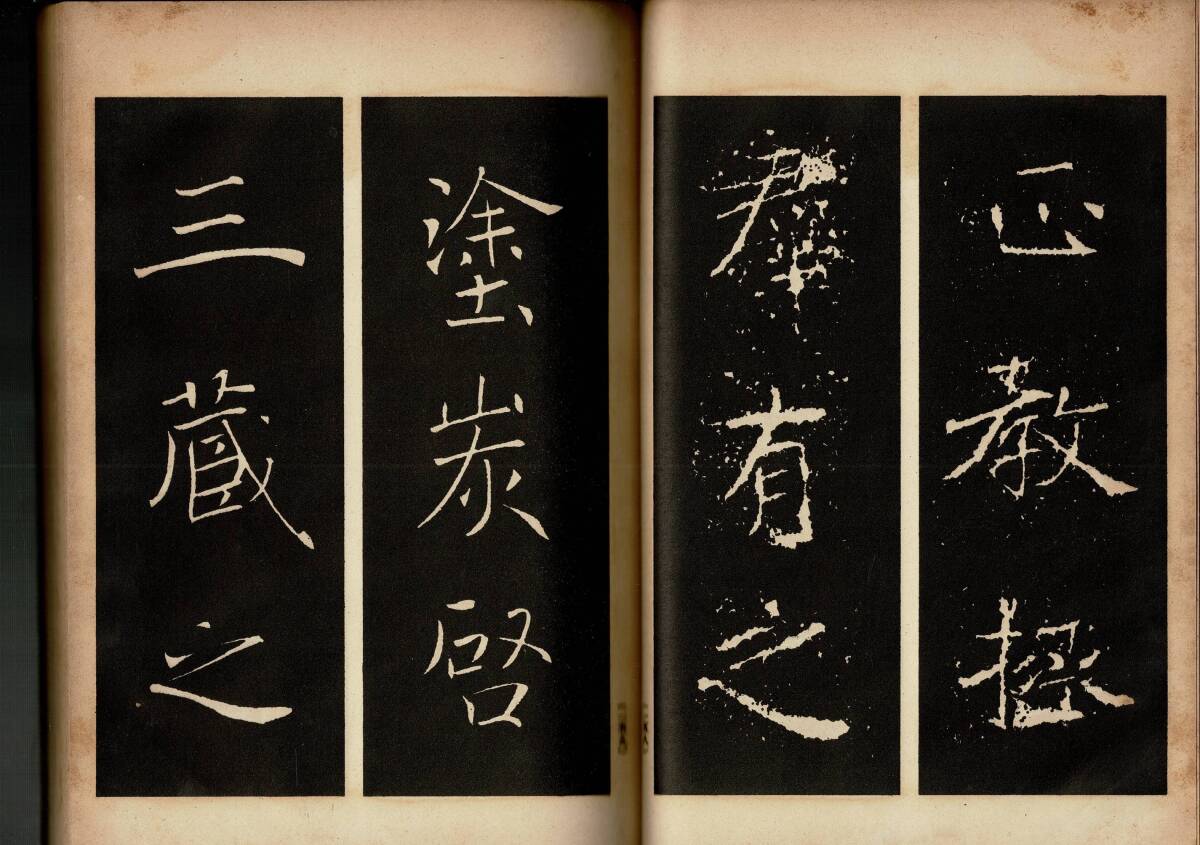 正教拯
羣有之
塗炭啓
三藏之